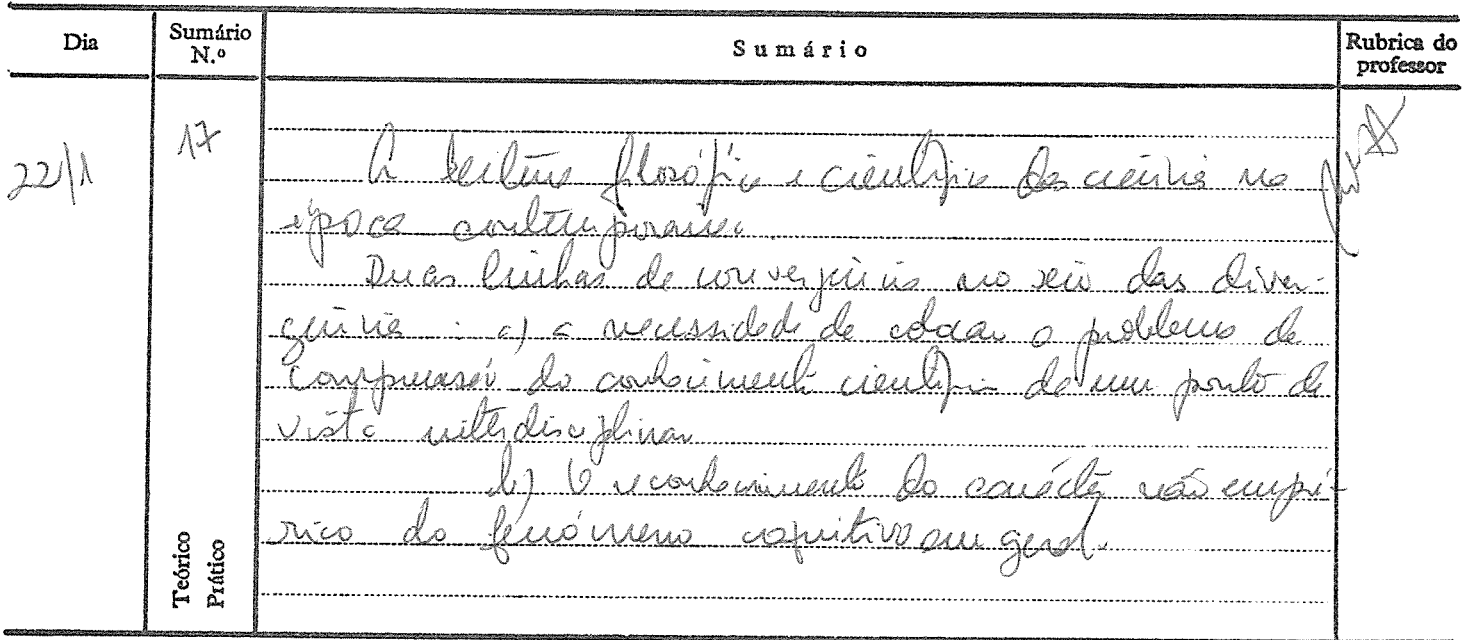 Dia
Sumário N.º
Sumário
Rubrica do professor
22/1
17
A leitura filosófica e científica das ciências na
época contemporânea.
Duas linhas de convergência no seio das diver-
gências : a) a necessidade de colocar o problema da
compreensão do conhecimento científico de um ponto de
vista interdisciplinar
b) O reconhecimento do carácter não empí-
rico do fenómeno cognitivo em geral.
Teórico
Prático